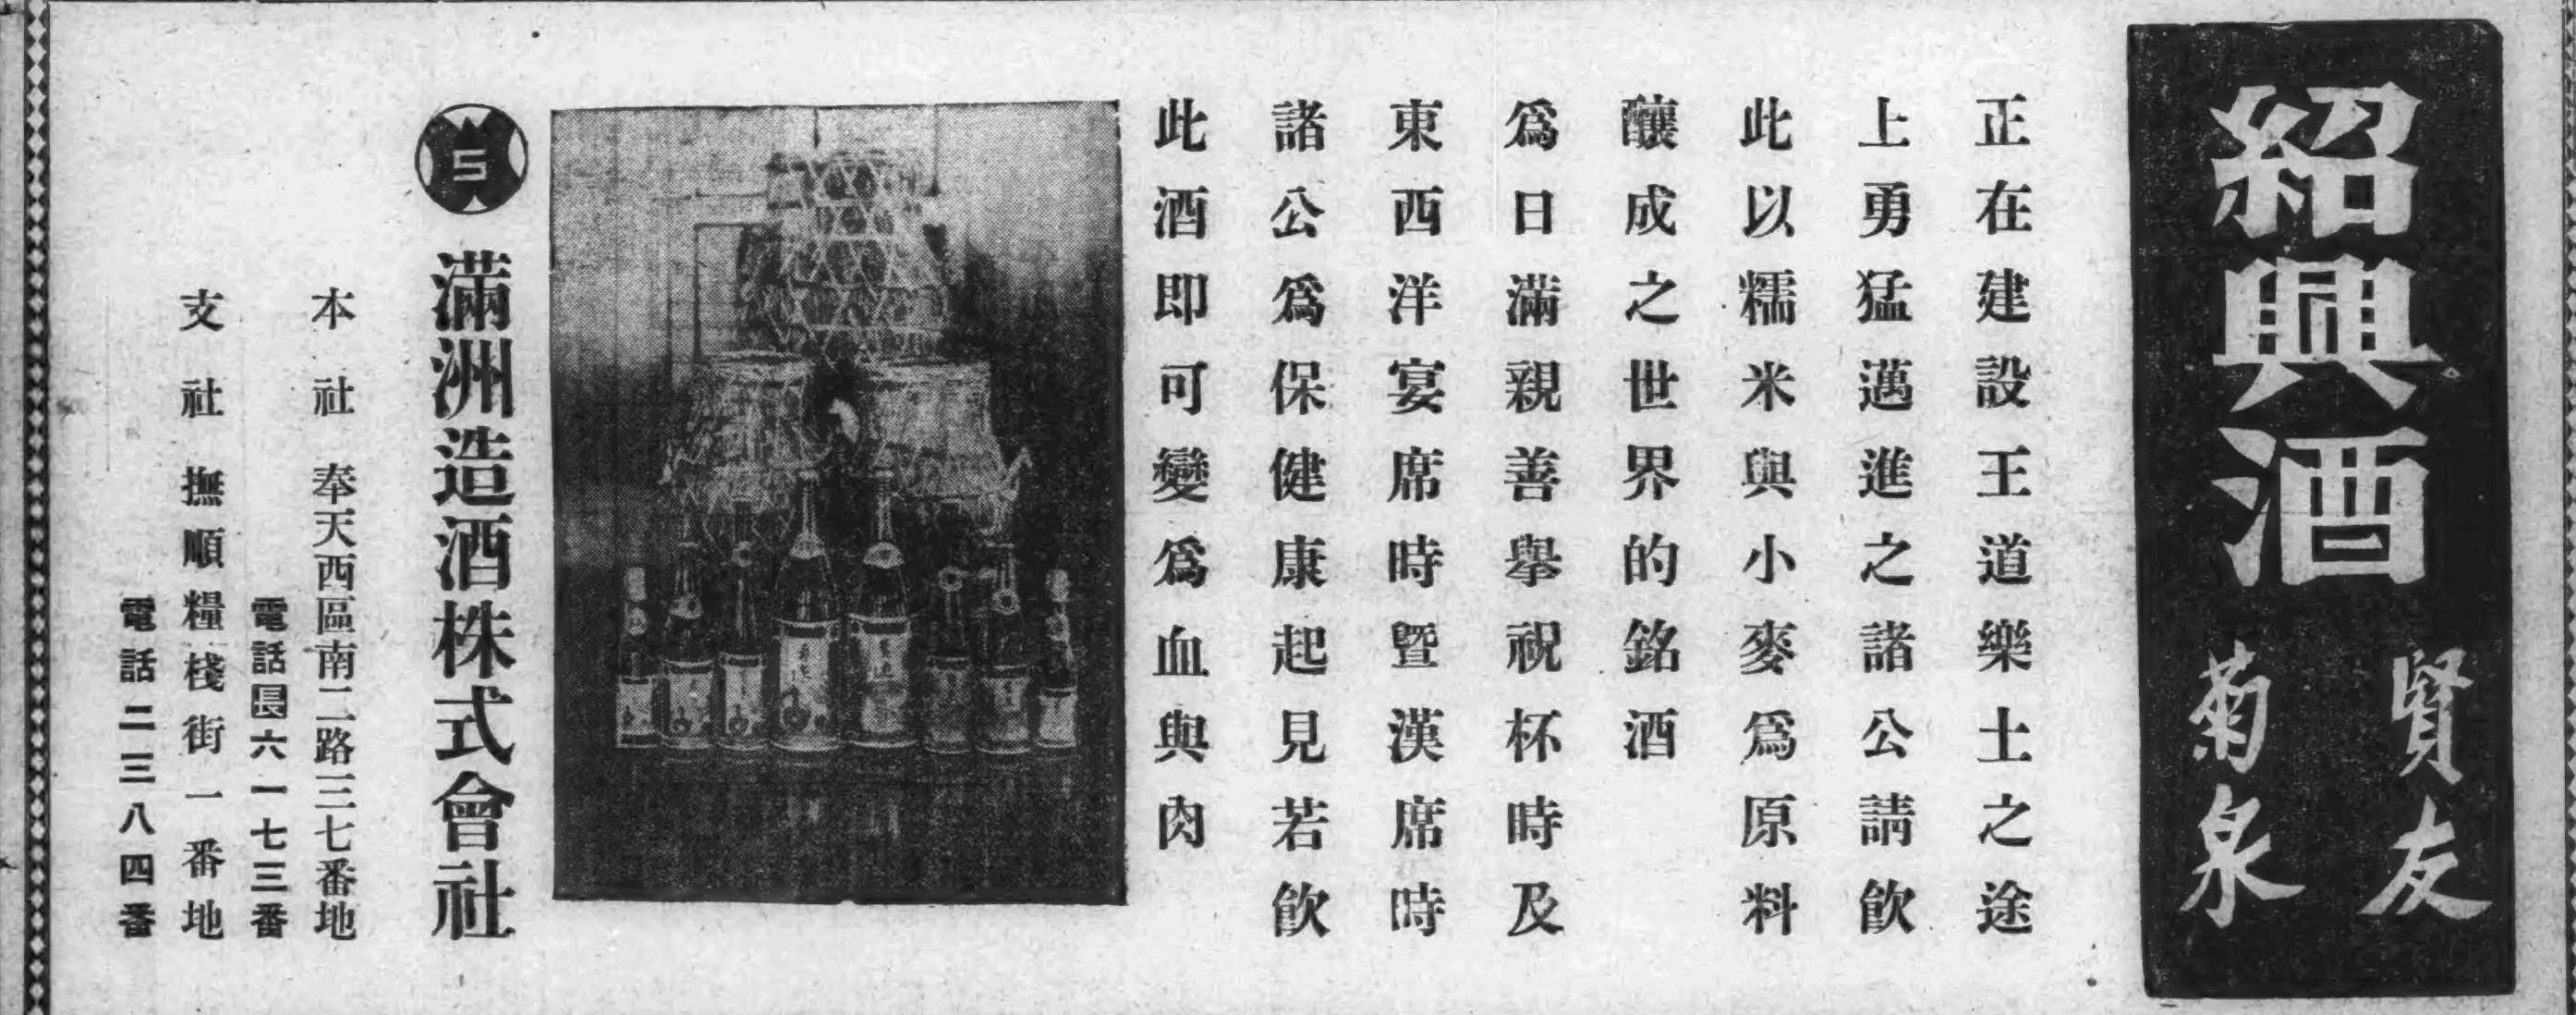 紹興酒
賢友
菊泉
正在建設王道樂土之途
上勇猛邁進之諸公請飲
此以糯米與小麥為原料
釀成之世界的銘酒
為日滿親善舉祝杯時及
東西洋宴席時曁漢席時
諸公為保健康起見若飲
此酒即可變為血與肉
S
滿洲造酒株式會社
本社 奉天西區南二路三七番地
電話長六一七三番
支社 撫順糧棧街一番地
電話二三八四番